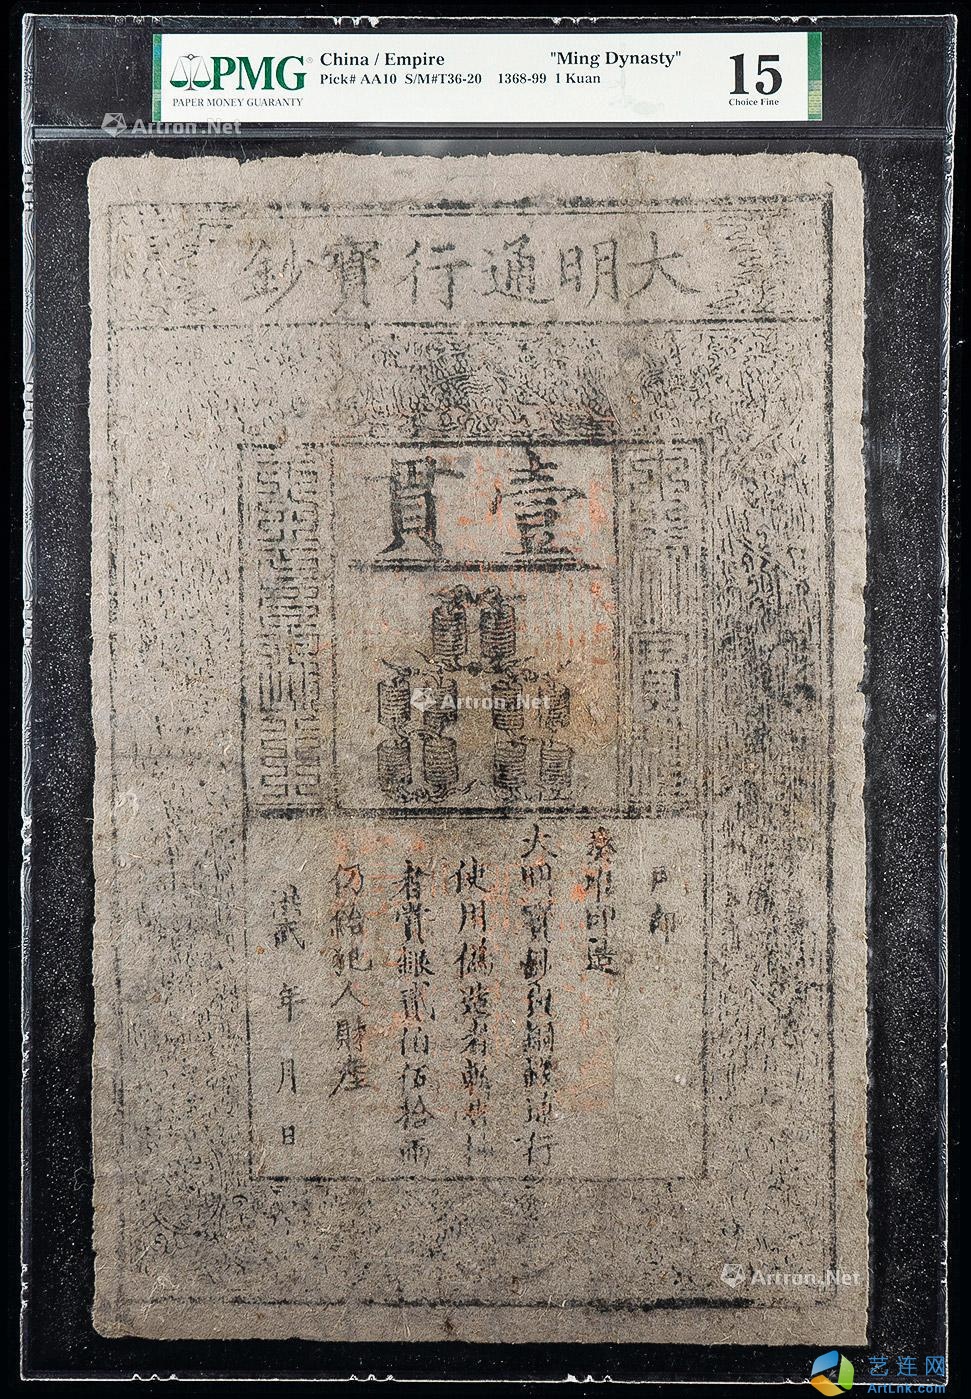 PMG
PAPER MONEY GUARANTY
China / Empire
Pick# AA10 S/M#T36-20
"Ming Dynasty"
1368-99 1 Kuan
15
Choice Fine
Artron.Net
大明通行寶鈔
壹貫
Artron.Net
戶部
奏准印造
大明寶鈔與銅錢通行
使用偽造者斬告捕
者賞銀貳伯伍拾兩
仍給犯人財產
洪武 年 月 日
Artron.Net
艺连网
ArtLnk.com